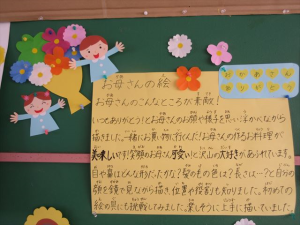 おかあさん
ありがとう
お母さんの絵
お母さんのこんなところが素敵!
いつもありがとう!とお母さんのお顔や様子を思い浮かべながら
描きました。一緒にお買い物に行くんだ お母さんの作るお料理が
美味しいです!笑顔のお母さん可愛いと沢山の大好きがあふれています。
目や鼻はどんな形だったかな?髪の毛の色は?長さは…?と自分の
顔を鏡で見ながら描き、位置や役割も知りました。初めての
絵の具にも挑戦してみました。楽しそうに上手に描いていました。